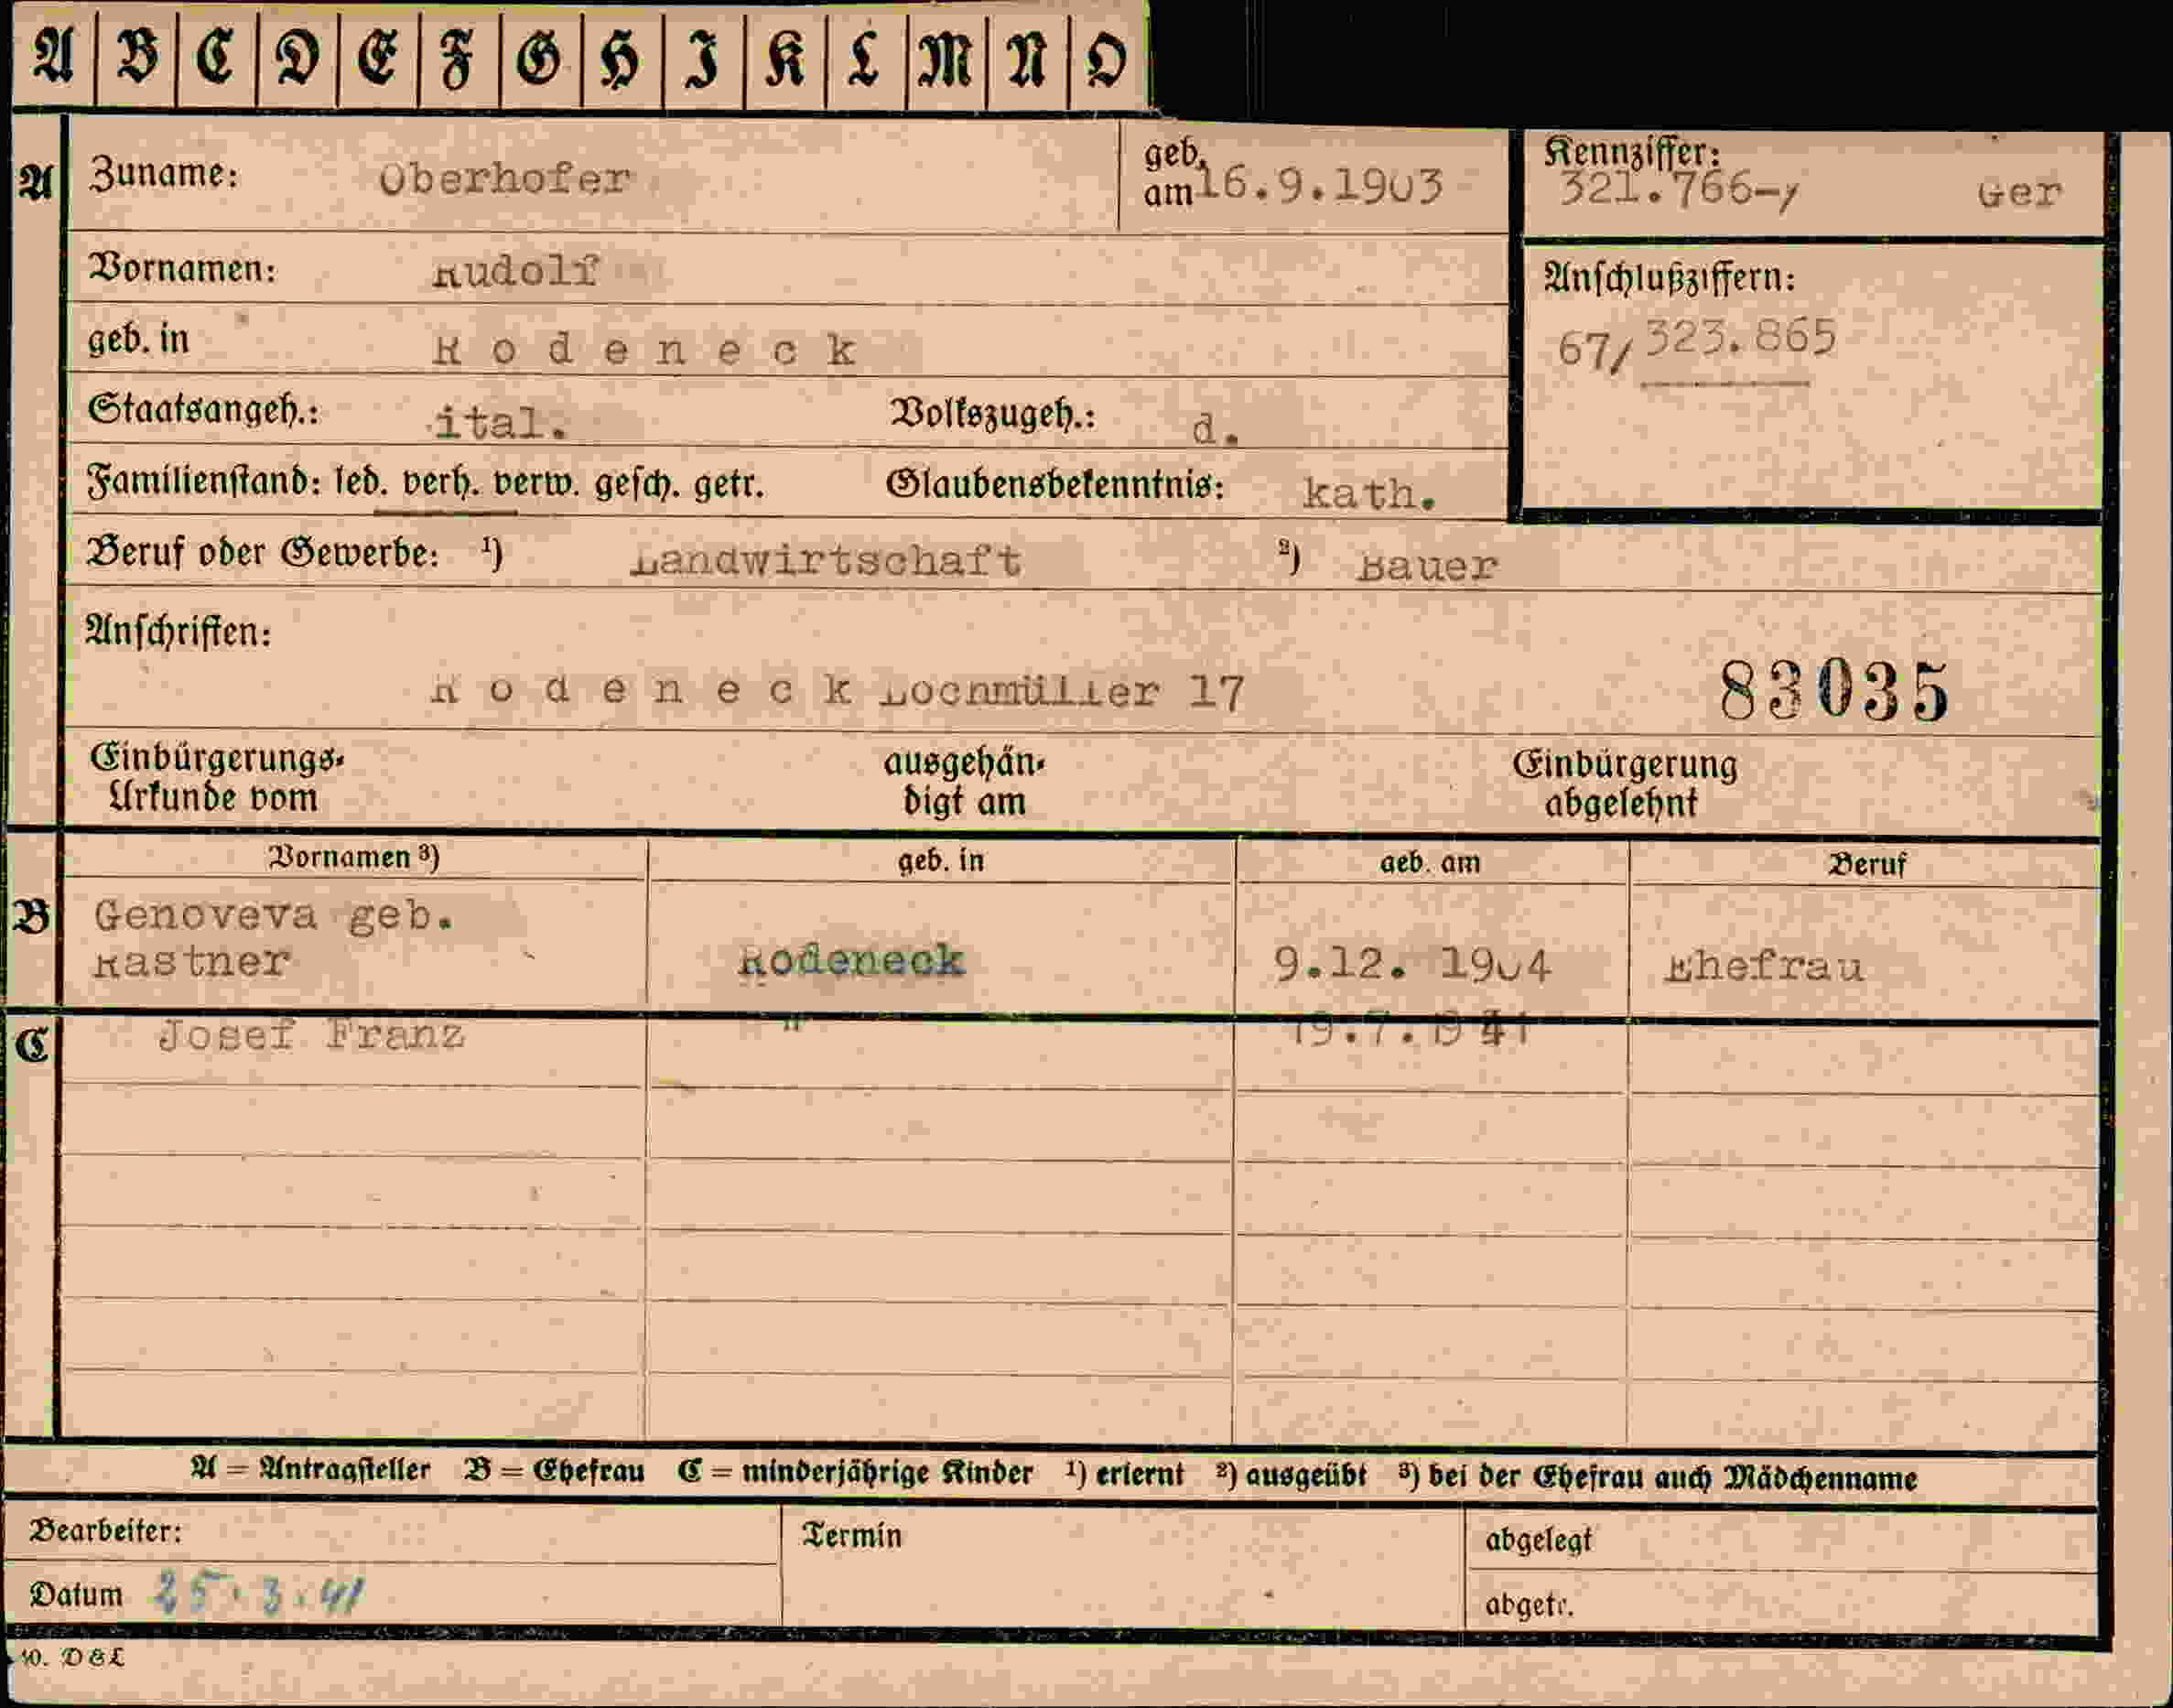 A B C D E F G H I K L M N O
A Zuname: Oberhofer geb. am 16.9.1903 Kennziffer: 321.766-/ Ger
Vornamen: Rudolf Anschlußziffern:
geb. in Rodeneck 67/323.865
Staatsangeh.: ital. Volkszugeh.: d.
Familienstand: led. verh. verw. gesch. getr. Glaubensbekenntnis: kath.
Beruf oder Gewerbe: ¹) Landwirtschaft ²) Bauer
Anschriften:
Rodeneck Lochmüller 17 83035
Einbürgerungs- ausgehän- Einbürgerung
Urkunde vom digt am abgelehnt
Vornamen ³) geb. in geb. am Beruf
B Genoveva geb.
Kastner Rodeneck 9.12. 1904 Ehefrau
C Josef Franz " 19.7.1941
A = Antragsteller B = Ehefrau C = minderjährige Kinder ¹) erlernt ²) ausgeübt ³) bei der Ehefrau auch Mädchenname
Bearbeiter: Termin abgelegt
Datum 25.3.41 abgetr.
10. D&L